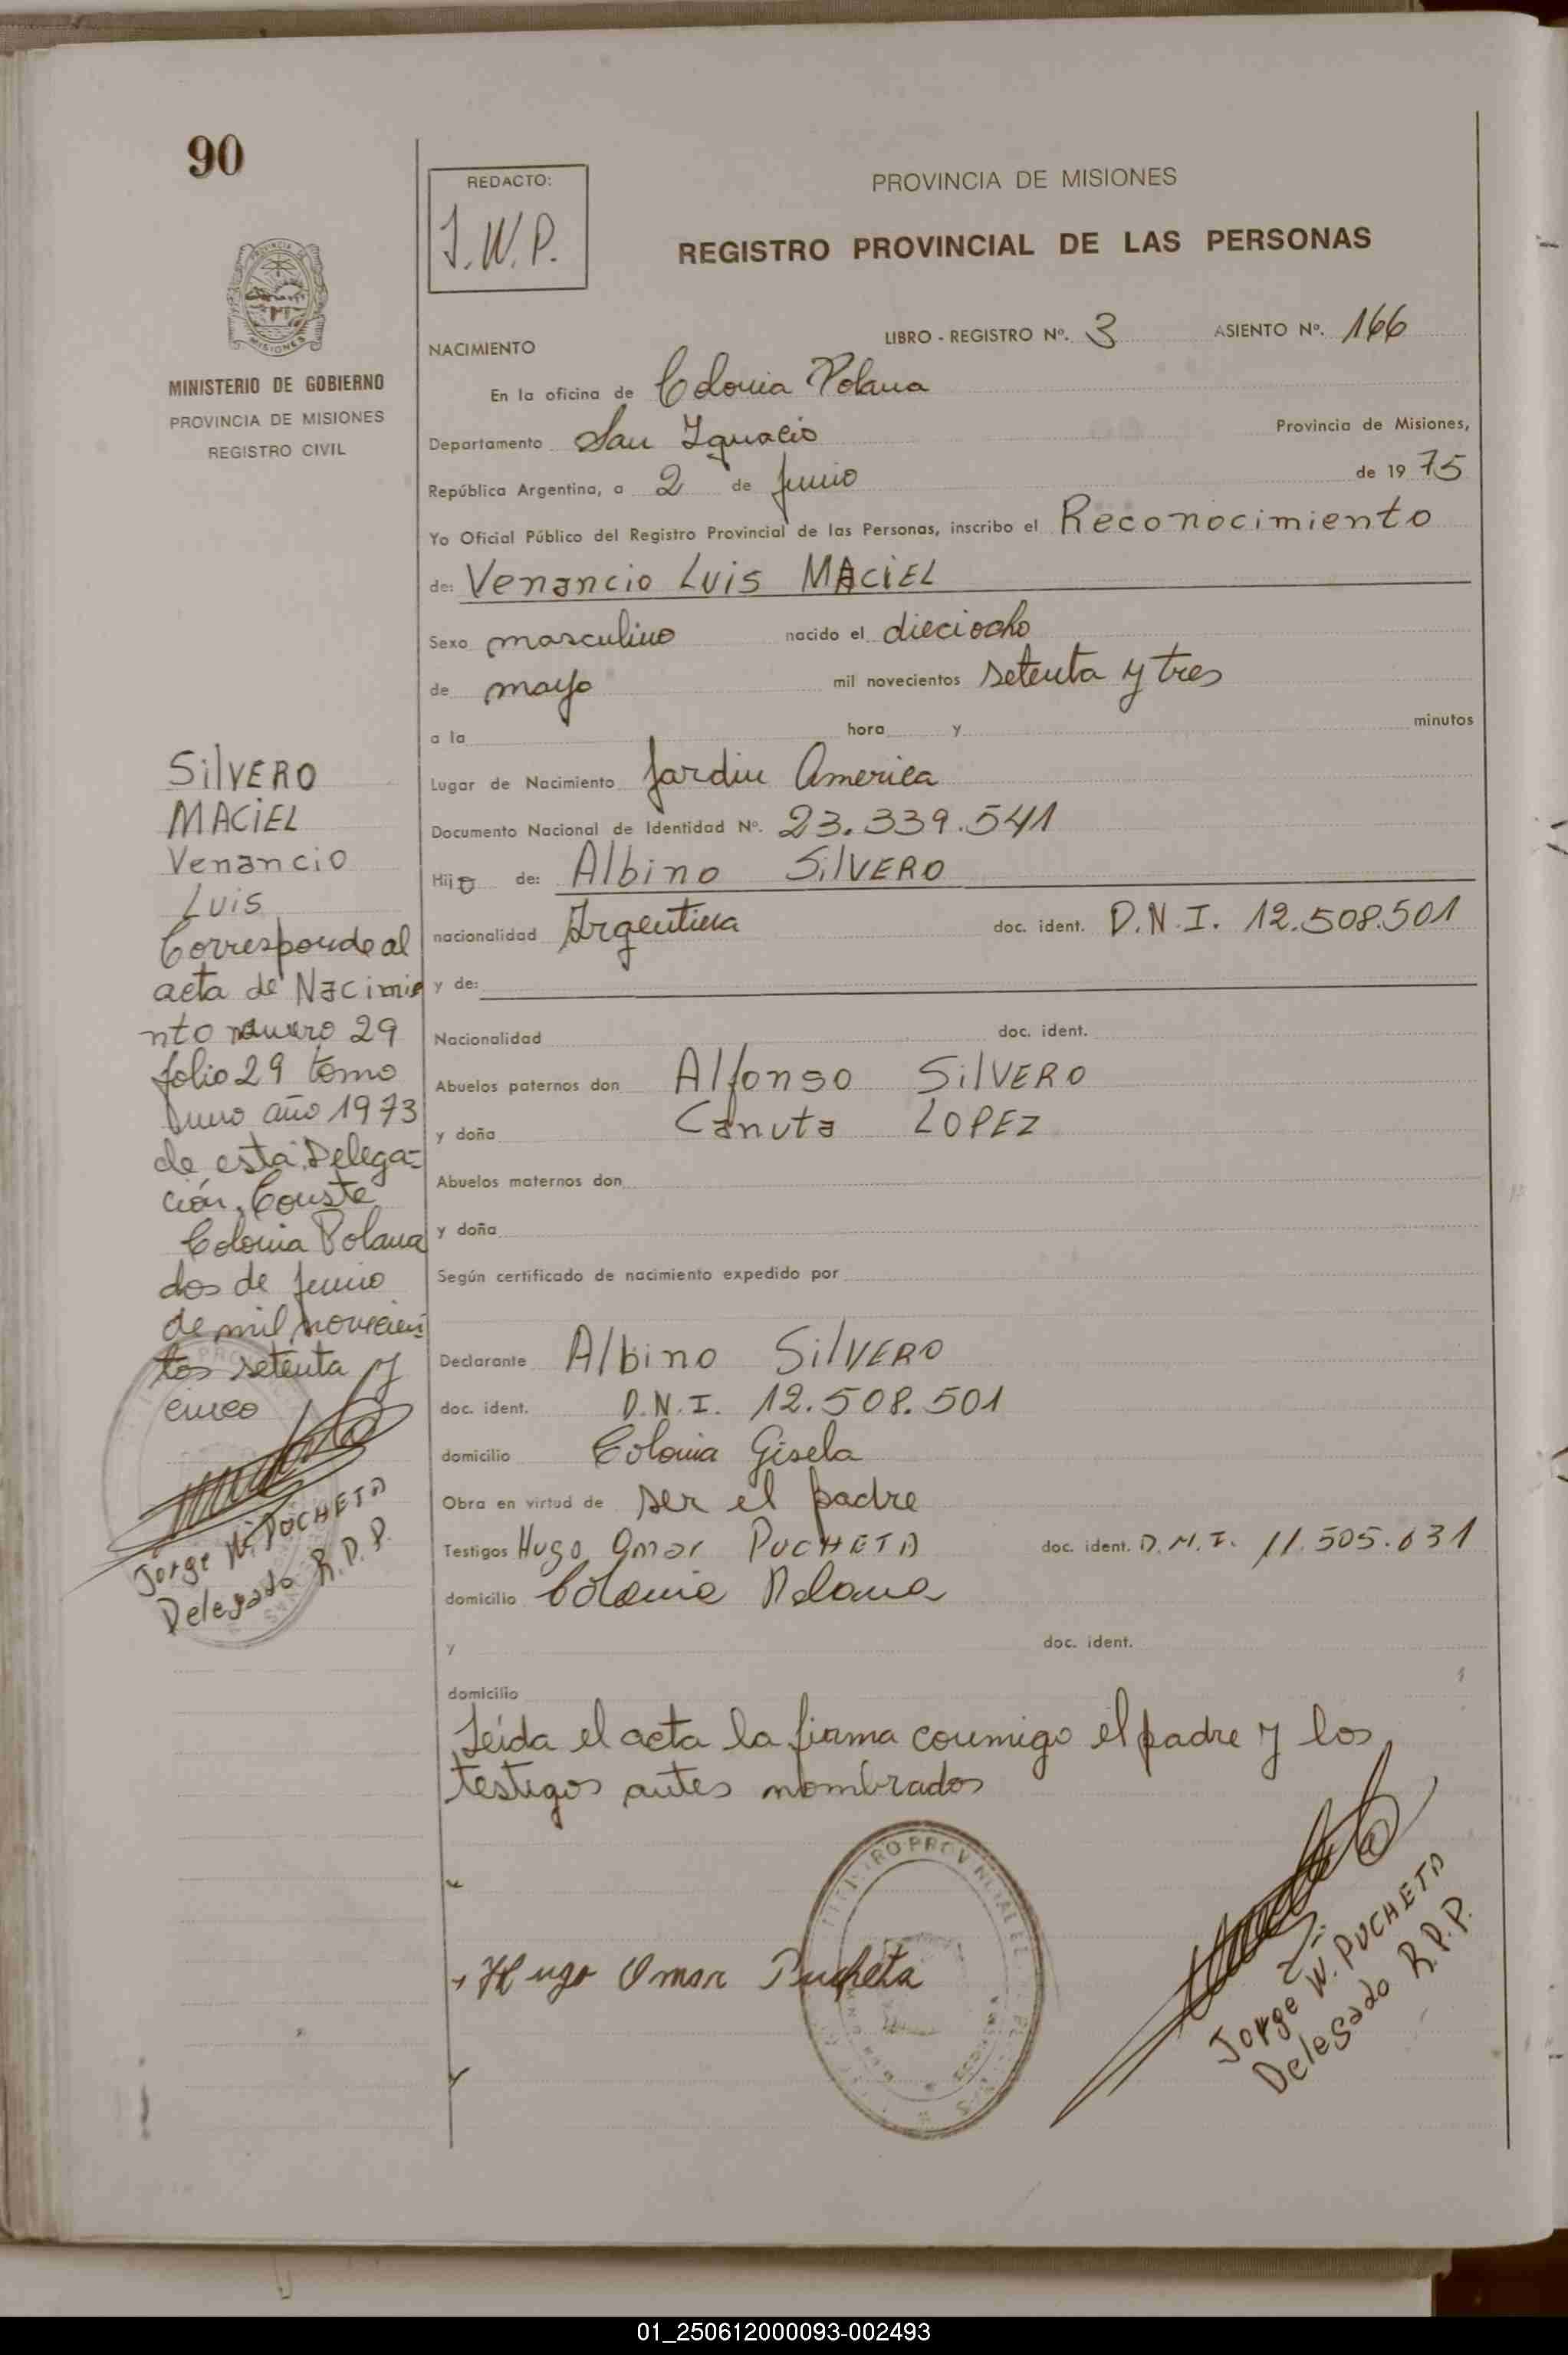 90
REDACTO:
J.W.P.
PROVINCIA DE MISIONES
REGISTRO PROVINCIAL DE LAS PERSONAS
MISIONES
MINISTERIO DE GOBIERNO
PROVINCIA DE MISIONES
REGISTRO CIVIL
LIBRO - REGISTRO Nº. 3 ASIENTO Nº. 166
NACIMIENTO
En la oficina de Colonia Polana
Departamento San Ignacio Provincia de Misiones,
República Argentina, a 2 de Junio de 1975
Yo Oficial Público del Registro Provincial de las Personas, inscribo el Reconocimiento
de: Venancio Luis MACIEL
Sexo masculino nacido el dieciocho
de mayo mil novecientos setenta y tres
a la hora y minutos
Lugar de Nacimiento Jardin America
Documento Nacional de Identidad Nº. 23.339.541
Hijo de: Albino SILVERO
nacionalidad Argentina doc. ident. D.N.I. 12.508.501
y de:
Nacionalidad doc. ident.
Abuelos paternos don Alfonso SILVERO
y doña Canuta LOPEZ
Abuelos maternos don
y doña
Según certificado de nacimiento expedido por
Declarante Albino SILVERO
doc. ident. D.N.I. 12.508.501
domicilio Colonia Gisela
Obra en virtud de ser el padre
Testigos Hugo Omar PUCHETA doc. ident. D.N.I. 11.505.631
domicilio Colonia Polana
y doc. ident.
domicilio
Leida el acta la firma conmigo el padre y los
testigos antes nombrados
Hugo Omar Pucheta
Jorge W. PUCHETA
Delegado R.P.P.
SILVERO
MACIEL
Venancio
Luis
Corresponde al
acta de Nacimie
nto nuero 29
folio 29 tomo
uno año 1973
de esta Delega-
ción. Conste
Colonia Polana
dos de Junio
de mil novecien
tos setenta y
cinco
Jorge W. PUCHETA
Delegado R.P.P.
01_250612000093-002493